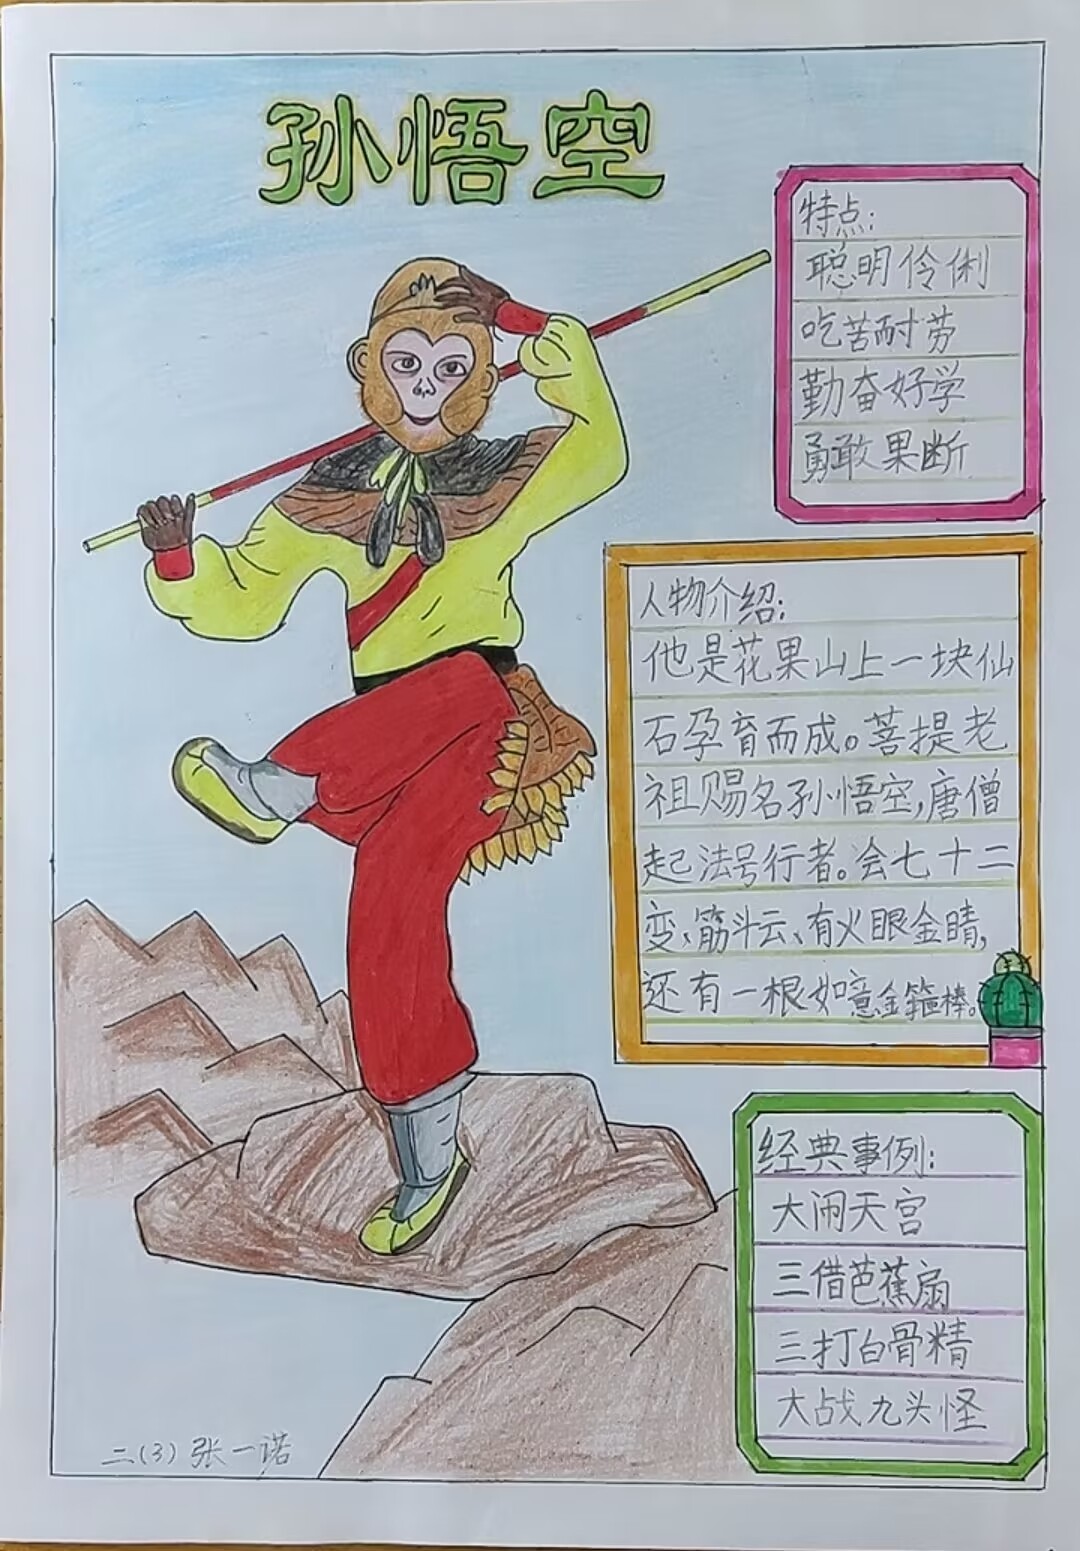 孙悟空
特点:
聪明伶俐
吃苦耐劳
勤奋好学
勇敢果断
人物介绍:
他是花果山上一块仙
石孕育而成。菩提老
祖赐名孙悟空,唐僧
起法号行者。会七十二
变、筋斗云、有火眼金睛,
还有一根如意金箍棒。
经典事例:
大闹天宫
三借芭蕉扇
三打白骨精
大战九头怪
二(3)张一诺